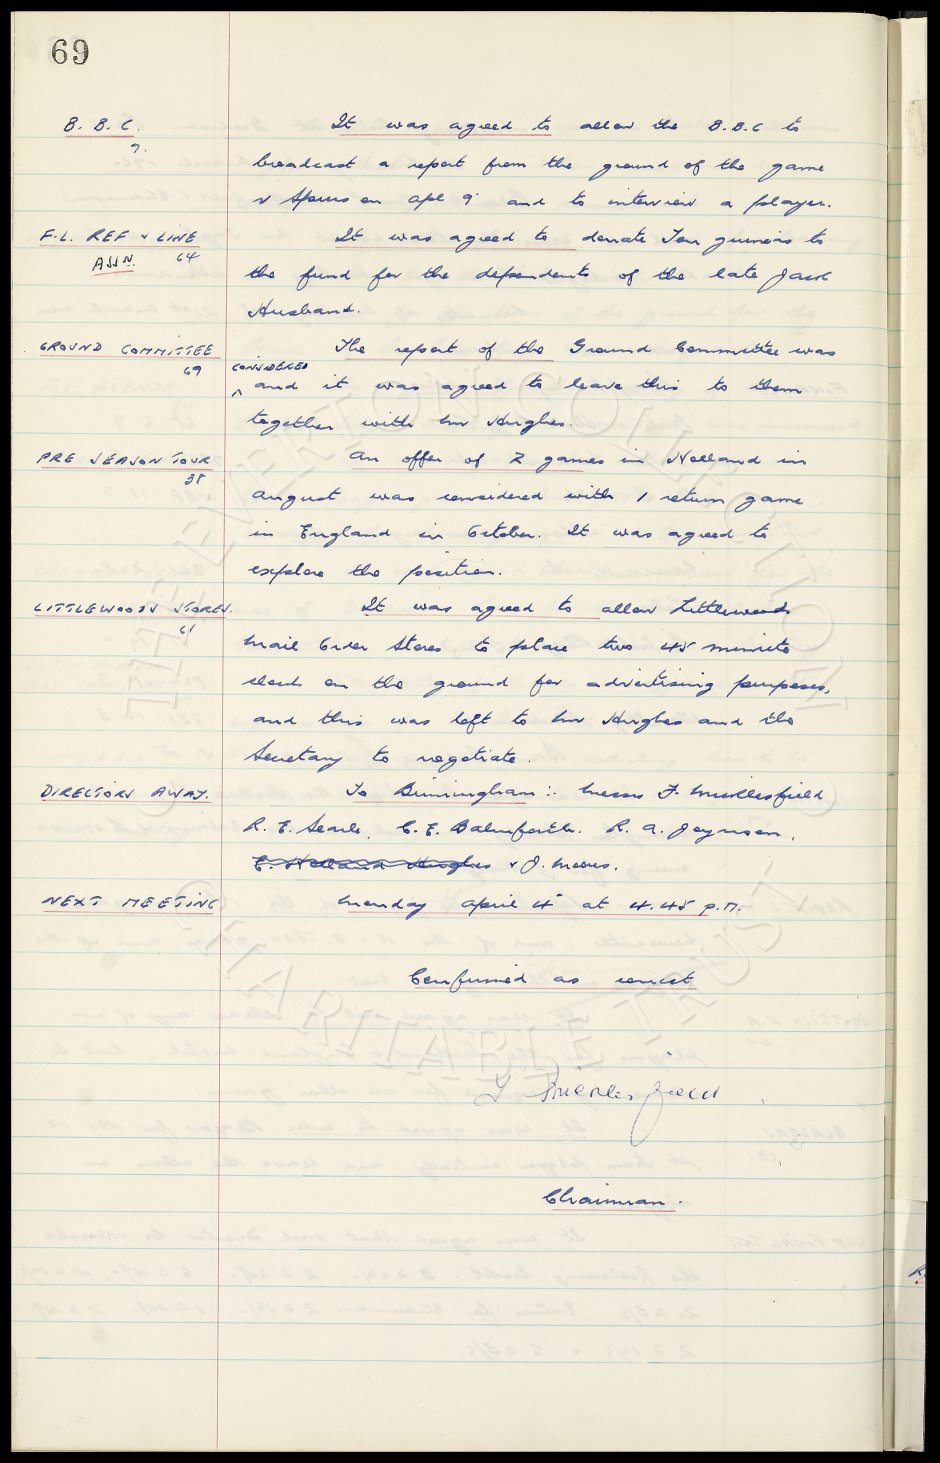 69
B. B. C. It was agreed to allow the B.B.C to
7.
broadcast a report from the ground of the game
v Spurs on Apl 9 and to interview a player.
F.L. REF & LINE It was agreed to donate Ten guineas to
ASSN. 64
the fund for the dependents of the late Jack
Husband.
GROUND COMMITTEE The report of the Ground Committee was
69 CONSIDERED
^ and it was agreed to leave this to them
together with Mr Hughes.
PRE SEASON TOUR An offer of 2 games in Holland in
38
August was considered with 1 return game
in England in October. It was agreed to
explore the position.
LITTLEWOODS STORES. It was agreed to allow Littlewoods
61
Mail Order Stores to place two 45 minute
clocks on the ground for advertising purposes,
and this was left to Mr Hughes and the
Secretary to negotiate.
DIRECTORS AWAY. To Birmingham:- Messrs F. Micklesfield
R. E. Searle, C. E. Balmforth. R. A. Joynson,
E. Holland Hughes & J. Moores.
NEXT MEETING Monday April 4 at 4.45 p.m.
Confirmed as correct
F Micklesfield
Chairman.
THE EVERTON COLLECTION
CHARITABLE TRUST